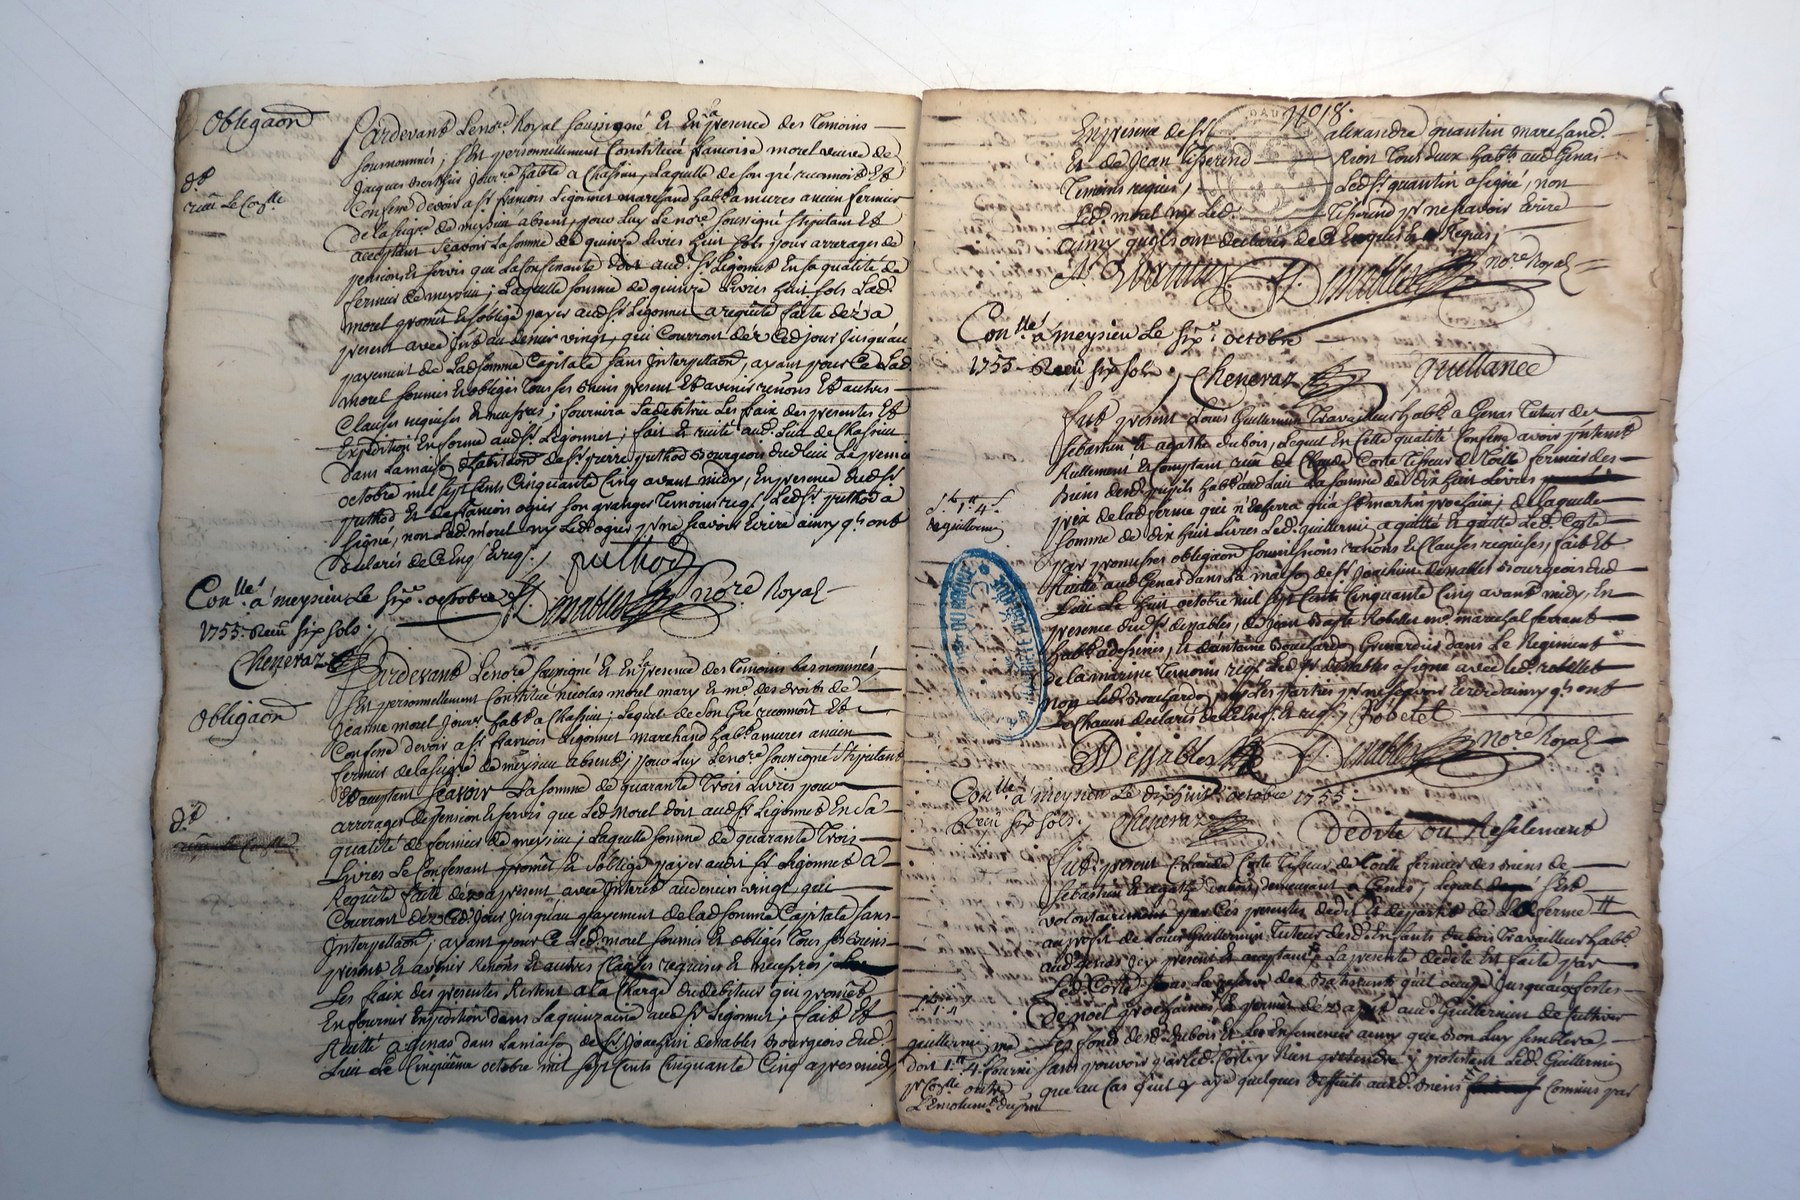 Obligaon
Pardevant Lenore Royal soussigné Et En la presence des Temoins
sousnommés, s'Est personnellement Constituée francoise morel veuve de
Jacques habte a Chassieu, Laquelle de son gré reconnoit Et
Confesse devoir a sr francois Ligonnet marchand habt a mures ancien fermier
de la seigre de meysieu absent, pour Luy Lenore soussigné stipulant Et
acceptant sçavoir La somme de quinze Livres huit sols pour arrerages de
pension Et servis que La Confessante doit aud. sr Ligonnet En sa qualité de
fermier de meysieu; Laquelle somme de quinze Livres huit sols Lad.
morel promet Et s'oblige payer aud sr Ligonnet a requete faite dez a
present avec Intt au denier vingt, qui Courront dez Ced jour Jusqu'au
payement de Lad somme Capitale sans Interpellaon, ayant pour Ce Lad
morel soumis Et obligés Tous ses biens present Et avenir renons Et autres
Clauses requises Et necessres; fournira La debitrice Les fraix des presentes Et
Expedition En forme aud sr Ligonnet; fait Et recité aud. Lieu de Chassieu
dans La maison d'habitaon de sr pierre puthod Bourgeois dud Lieu Le premier
octobre mil sept Cents Cinquante Cinq avant midy, En presence dud sr
puthod Et de francois ogier son granger Temoins reqs, Led sr puthod a
signé, non Lad. morel ny Led ogier pr ne sçavoir Ecrire ainsy qs ont
declarés de Ce Enqs Et reqs,
puthod
Conllé a meysieu Le sixe octobre
Desnables nore Royal
1755. Reçu six sols.
Cheneraz
Pardevant Lenore soussigné Et En la presence des Temoins bas nommés,
s'Est personnellement Constitué Nicolas morel mary Et me des droits de
Obligaon
Jeanne morel habt a Chassieu; Lequel de son Gré reconnoit Et
Confesse devoir a sr francois Ligonnet marchand habt a mures ancien
fermier de la seigre de meysieu absent, pour Luy Lenore soussigné stipulant
Et acceptant sçavoir La somme de quarante Trois Livres pour
arrerages de pension Et servis que Led Morel doit aud sr Ligonnet En sa
qualité de fermier de meysieu; Laquelle somme de quarante Trois
Livres Le Confessant promet Et s'oblige payer aud. sr Ligonnet a
Requete faite dez a present, avec Interet au denier vingt qui
Courront dez Ced Jour Jusqu'au payement de Lad somme Capitale sans
Interpellaon, ayant pour Ce Led. morel soumis Et obligés Tous ses Biens
present Et avenir Renons Et autres Clauses requises Et necessres;
Les fraix des presentes Restent a La Charge du debiteur qui promet
En fournir Expedition dans La quinzaine aud sr Ligonnet; fait Et
Recité a Genas dans La maison de sr Joachim desnables Bourgeois dud.
Lieu Le Cinquieme octobre mil sept Cents Cinquante Cinq apres midy
En presence de sr alexandre quantin marchand.
Et de Jean Tisserand Tous deux habts aud Genas
Temoins requis, Led sr quantin a signé, non
Led. morel ny Led. Tisserand pr ne sçavoir Ecrire
ainsy qu'ils ont declarés de Ce Enquis Et Requis,
Desnables nore Royal
Conllé a meysieu Le sixe octobre
1755. Reçu six sols, Cheneraz
quittance
fut present Louis Guillermin Travailleur habt a Genas Tuteur de
sebastien Et agathe dubois, Lequel En Cette qualité Confesse avoir presentt
Reellement Et Comptant reçu de Claude Coste Tisseur de Toille fermier des
Biens desd. pupils habt aud Lieu La somme de Dix huit Livres
prix de Lad ferme qui n'Echerra qu'a st martin prochain; de Laquelle
somme de Dix huit Livres Led. guillermin a quitté Et quitte Led. Coste
par promesses obligaon soumissions renons Et Clauses requises, fait Et
Recité aud Genas dans La maison de sr Joachim desnables Bourgeois dud
Lieu Le huit octobre mil sept Cents Cinquante Cinq avant midy, En
presence dud sr desnables, de Jean Robelet me marechal ferrant
habt a dessines, Et d'antoine Bouchard Grenadier dans Le Regiment
de la marine Temoins reqs Led sr desnables a signé avec Led. robelet
non Led. Bouchard ny Les parties pr ne sçavoir Ecrire ainsy qs ont
declarés de Ce Enqs Et reqs, Robelet
Desnables Desnables nore Royal
Conllé a meysieu Le dix huite octobre 1755.
Reçu six sols. Cheneraz
Dedite ou Resilement
fut present Claude Coste Tisseur de Toille fermier des biens de
sebastien Et agathe dubois, demeurant a Genas, Lequel s'Est
volontairement par Ces presentes dedit Et departit de Lad ferme
au profit de Louis Guillermin Tuteur desd. Enfants dubois Travailleur habt
aud genas icy present Et acceptant, La presente dedite Est faite par
Led. Coste sous La reserve des Batiments qu'il occupe Jusqu'aux fêtes
de noel prochaines, Et permet dez a present aud. Guillermin de Cultiver
Les fonds desd. dubois Et Les Ensemencer ainsy que Bon Luy semblera,
sans pouvoir par Led. Coste y Rien pretendre, protestant Led. Guillermin
que au Cas qu'il y aye quelques deffects auxd. biens Commis par